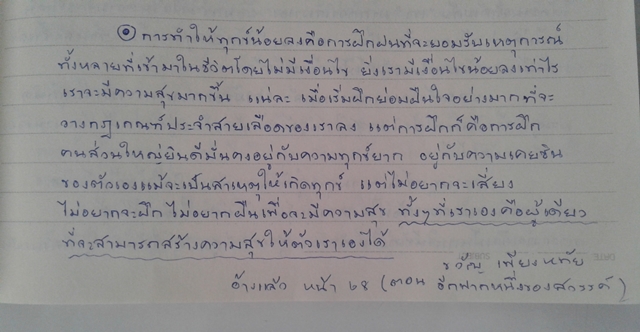 ⊙ การทำให้ทุกข์น้อยลงคือการฝึกฝนที่จะยอมรับเหตุการณ์
ทั้งหลายที่เข้ามาในชีวิตโดยไม่มีเงื่อนไข ยิ่งเรามีเงื่อนไขน้อยลงเท่าไร
เราจะมีความสุขมากขึ้น แน่ละ เมื่อเริ่มฝึกย่อมฝืนใจอย่างมากที่จะ
วางกฎเกณฑ์ประจำสายเลือดของเราลง แต่การฝึกก็คือการฝึก
คนส่วนใหญ่ยินดีมั่นคงอยู่กับความทุกข์ยาก อยู่กับความเคยชิน
ของตัวเองแม้จะเป็นสาเหตุให้เกิดทุกข์ แต่ไม่อยากจะเสี่ยง
ไม่อยากจะฝึก ไม่อยากฝืนเพื่อจะมีความสุข ทั้งๆที่เราเองคือผู้เดียว
ที่จะสามารถสร้างความสุขให้ตัวเราเองได้
ขวัญ เพียงหทัย
อ้างแล้ว หน้า ๖๕ (ตอน อีกฟากหนึ่งของสวรรค์)